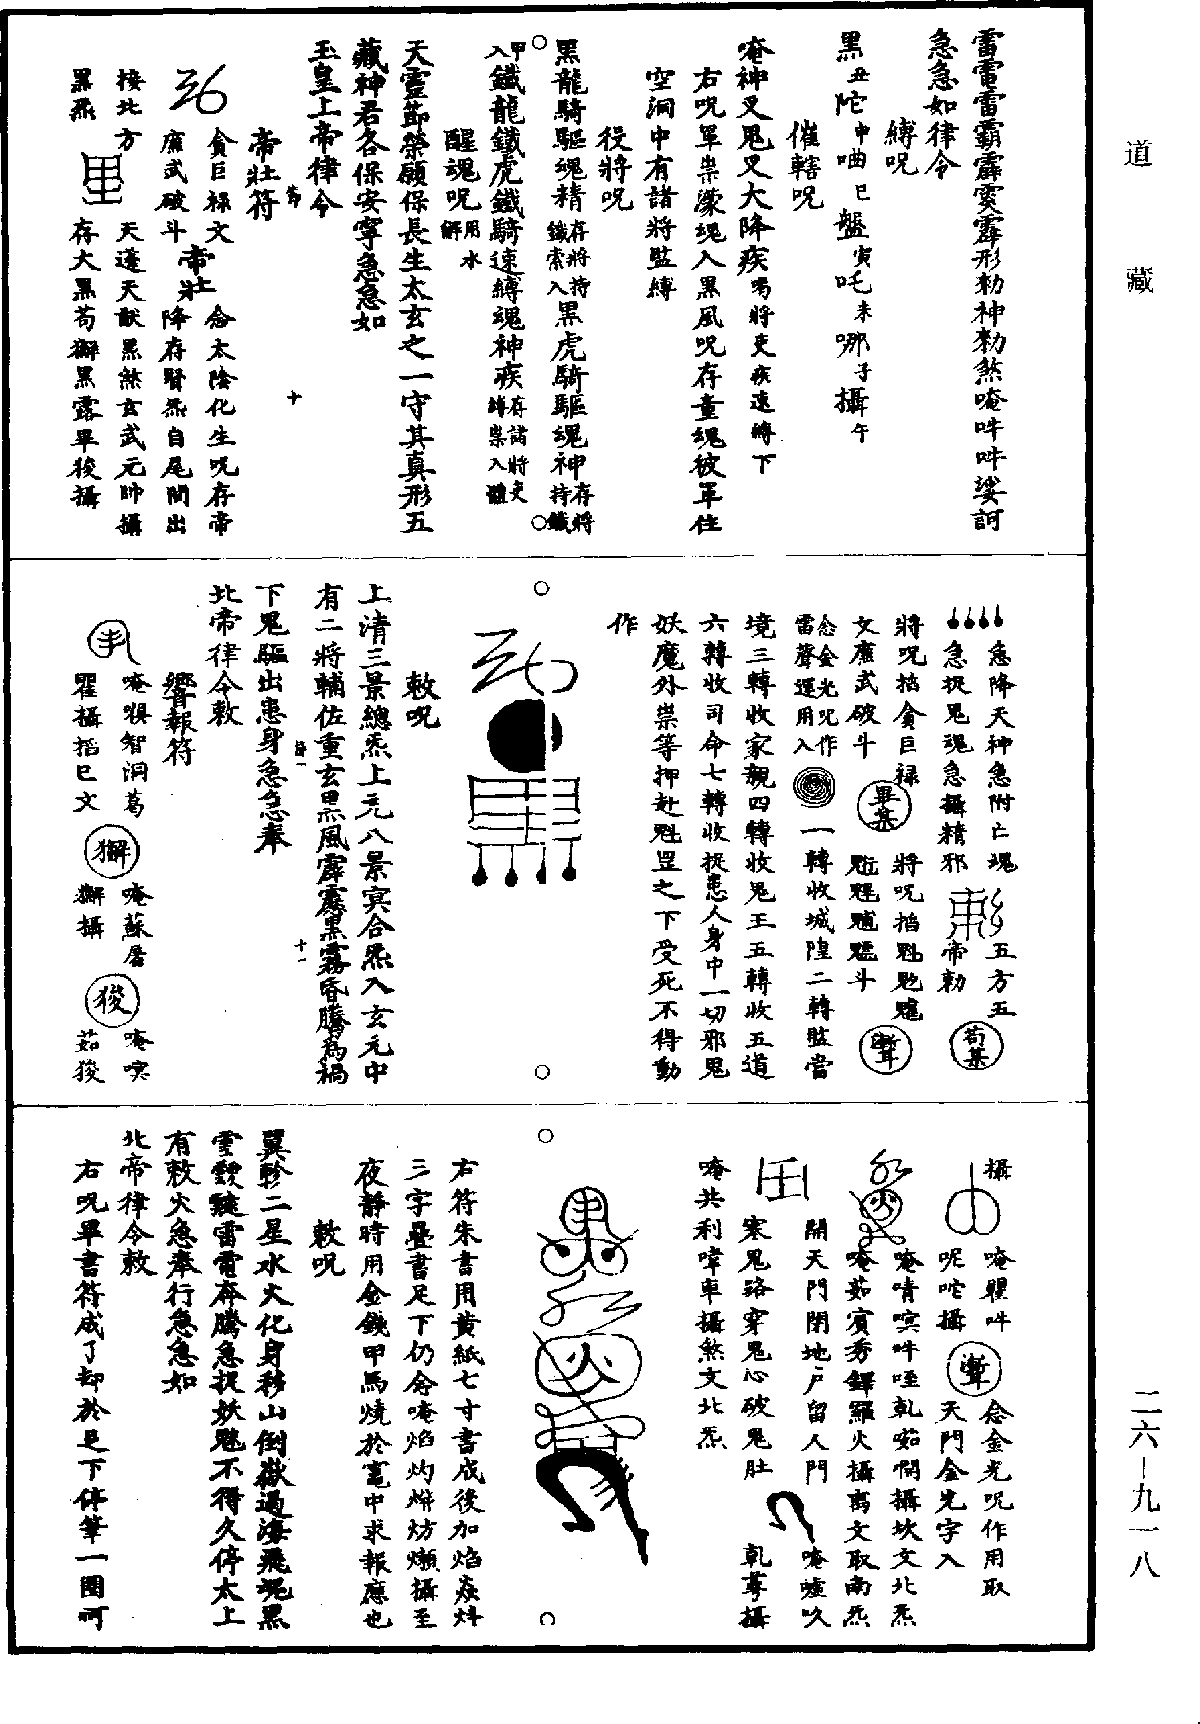 道藏
雷電雷霸霹䨓霹形勑神勑煞唵吽吽娑訶
急急如律令
縛呪
黑丑陀申呬巳盤寅吒未哪子攝午
催轄呪
唵神叉鬼叉大降疾喝將吏疾速縛下
右呪畢祟濛魂入黑風呪存童魂被軍住
空洞中有諸將監縛
役將呪
黑龍騎驅魂精存將持鐵索入黑虎騎驅魂神存將持鐵
甲入鐵龍鐵虎鐵騎速縛魂神疾存諸將吏縛祟入體
醒魂呪用水解
天靈節榮願保長生太玄之一守其真形五
藏神君各保安寧急急如
玉皇上帝律令
帝壯符
貪巨祿文帝念太陰化生呪存帝
廉武破斗壯降存腎炁自尾閭出
接北方天蓬天猷黑煞玄武元帥攝
黑炁存大黑苟獬黑露畢狻攝
十
急降天神急附亡魂五方五
急捉鬼魂急攝精邪帝勑苟某
將呪掐貪巨祿將呪掐魁
文廉武破斗畢某斗漸耳
念金光呪作
雷聲運用入一轉收城隍二轉監當
境三轉收家親四轉收鬼王五轉收五道
六轉收司命七轉收捉患人身中一切邪鬼
妖魔外祟等押赴魁罡之下受死不得動
作
敕呪
上清三景總炁上元八景冥合炁入玄元中
有二將輔佐重玄黑風霹靂黑霧昏騰為禍
下鬼驅出患身急急奉
北帝律令敕
響報符
唵㗋智洞葛獬唵蘇屠狻唵㖼
瞿攝掐巳文獬攝茹狻
十一
攝唵瞿吽念金光呪作用取
呢咜攝天門金光字入
唵啨㖼吽㗌乹㗘㘖攝坎文北炁
唵茹賓秀鐸羅火攝离文取南炁
開天門閉地户留人門唵嘘㕮
塞鬼路穿鬼心破鬼肚乹䔿攝
唵共利㖞車攝煞文北炁
右符朱書用黄紙七寸書成後加焰焱炓
三字疊書足下仍念唵焰灼烞炐爤攝至
夜靜時用金錢甲馬燒於竈中求報應也
敕呪
翼軫二星水火化身移山倒嶽過海飛魂黑
雲靉靆雷電奔騰急捉妖魅不得久停太上
有敕火急奉行急急如
北帝律令敕
右呪畢書符成了却於足下停筆一圈呵
二六-九一八